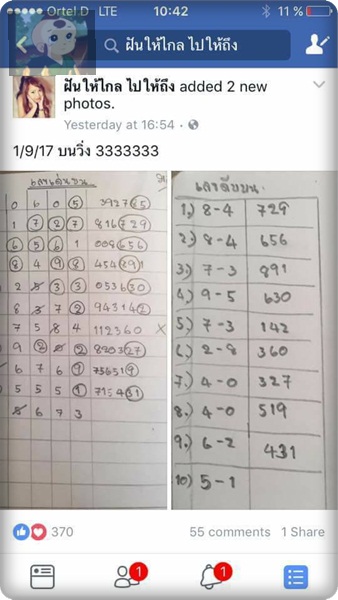 Ortel D LTE 10:42 11 %
ฝันให้ไกล ไปให้ถึง
ฝันให้ไกล ไปให้ถึง added 2 new
photos.
Yesterday at 16:54
1/9/17 บนวิ่ง 3333333
เลขเด่นบน
0 6 0 5 392725
1 7 2 7 816729
6 5 6 1 008656
8 4 9 8 454291
2 5 3 3 053630
8 3 7 2 943142
7 5 8 4 112360 X
9 2 0 2 820327
6 7 6 9 756519
5 5 5 1 715431
8 6 7 3
เลขดับบน
1.) 8-4 729
2.) 8-4 656
3.) 7-3 891
4.) 9-5 630
5.) 7-3 142
6.) 2-8 360
7.) 4-0 327
8.) 4-0 519
9.) 6-2 431
10) 5-1
370 55 comments 1 Share
1 1